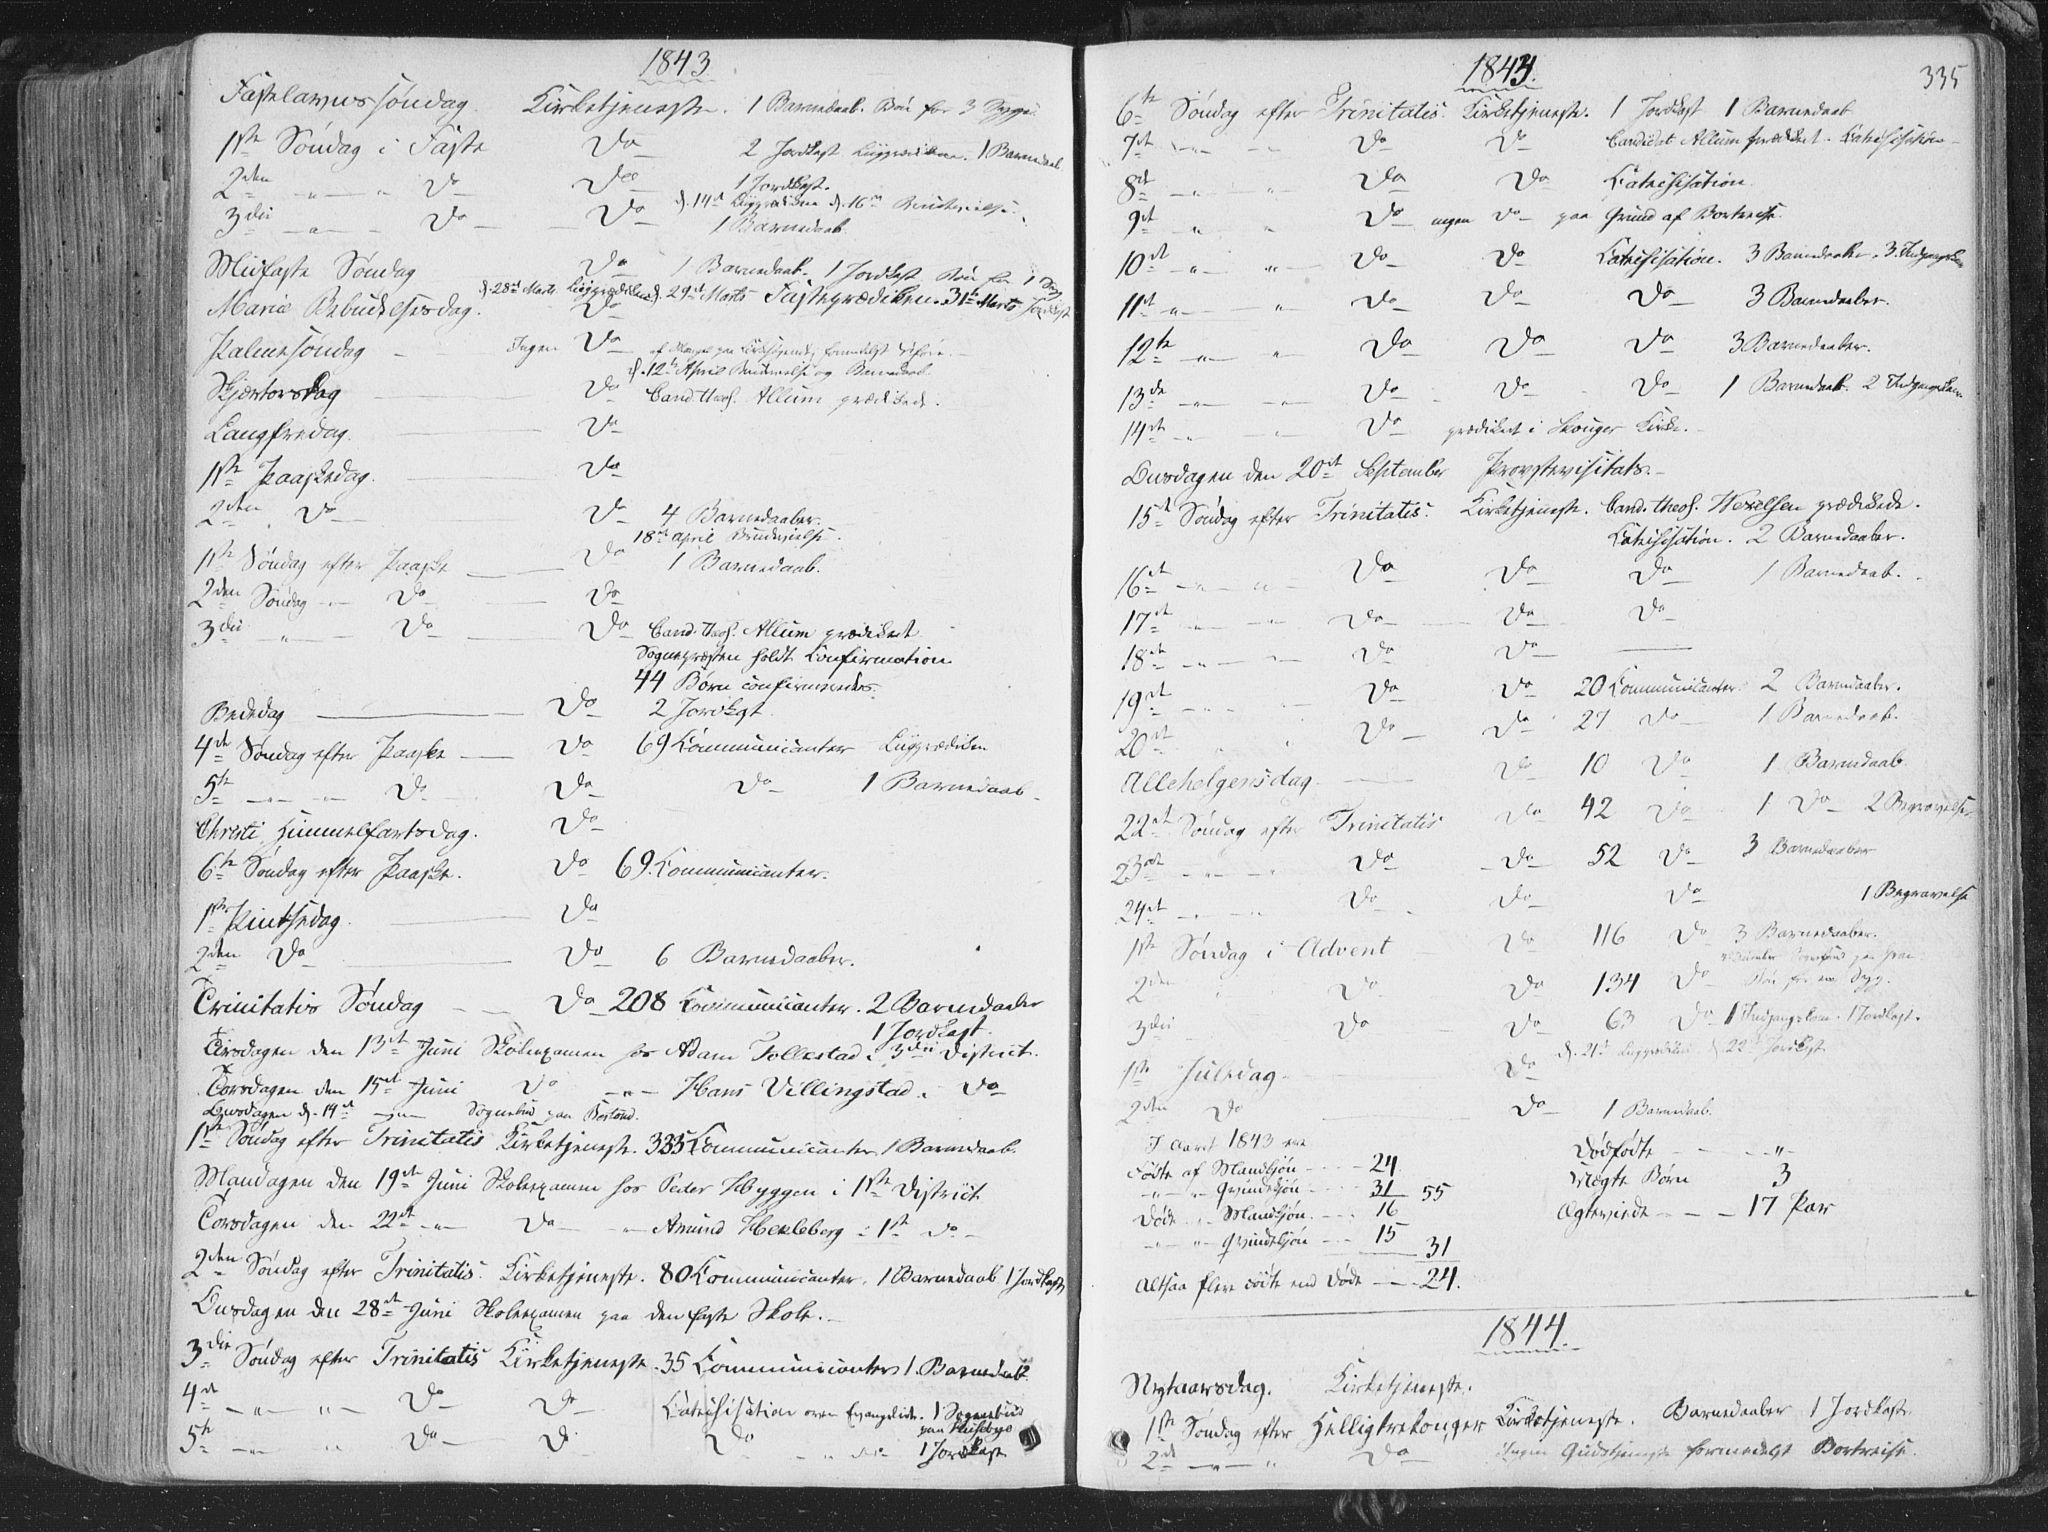 1843
Fastelavnssøndag. Kirketjeneste. 1 Barnedaab. Bøn for 3 Syge
1ste Søndag i Faste Do 2 Jordkast Liigprædiken. 1 Barnedaab
2den " " Do Do 1 Jordkast.
d. 14de Liigprædiken d. 16de Brudevielse
3die " Do Do 1 Barnedaab
Midfaste Søndag Do 1 Barnedaab. 1 Jordkast Bøn for 1 Syg
d. 28de Marts Liigprædiken d. 29de Marts Fasteprædiken. 31te Marts Jordkast
Mariæ Bebudelsesdag. Do
Palmesøndag Ingen Do af Mangel paa Kirkesøgende, formedelst
d. 12te April Brudevielse og Barnedaab
Skjærtorsdag Do Cand. theol. Allum prædikede.
Langfredag. Do
1ste Paaskedag. Do
2den Do Do 4 Barnedaaber.
18de April Brudevielse.
1ste Søndag efter Paaske Do 1 Barnedaab.
2den Søndag Do Do
3die " Do Do Cand. theol. Allum prædiket
Sognepræsten holdt Confirmation
44 Børn confirmeredes.
Bededag Do 2 Jordkast
4de Søndag efter Paaske Do 69 Kommunicanter Liigprædiken
5te " " Do Do Do 1 Barnedaab
Christi Himmelfartsdag. Do
6te Søndag efter Paaske. Do 69 Kommunicanter.
1ste Pintsedag. Do
2den Do Do 6 Barnedaaber.
Trinitatis Søndag Do 208 Kommunicanter. 2 Barnedaaber
1 Jordkast.
Tirsdagen den 13de Juni Skoleexamen hos Adam Tollestad i 3die District.
Torsdagen den 15de Juni Do " Hans Villingstad i Do
Onsdagen d. 14de Sognebud paa
1ste Søndag efter Trinitatis Kirketjeneste. 333 Kommunicanter 1 Barnedaab.
Mandagen den 19de Juni Skoleexamen hos Peder Hyggen i 1ste District
Torsdagen den 22de " Do " Amund Hekleberg i 1ste do
2den Søndag efter Trinitatis. Kirketjeneste. 80 Kommunicanter. 1 Barnedaab 1 Jordkast
Onsdagen den 28de Juni Skoleexamen paa den faste Skole.
3die Søndag efter Trinitatis Kirketjeneste. 35 Kommunicanter 1. Barnedaab
4de " " Do Do Katechisation over Evangeliet. 1 Sognebud
paa Huseby
5te " " Do Do Do 1 Jordkast
1843.
335
6te Søndag efter Trinitatis. Kirketjeneste. 1 Jordkast 1 Barnedaab
7de " " Do Do Candidat Allum prædiket. Katechisation
8de " " Do Do Katechisation
9de " " Do ingen Do paa Grund af Bortreise.
10de " " Do Do Katechisation. 3 Barnedaaber. 3 Indgangskoner
11te " " Do Do Do 3 Barnedaaber.
12te " " Do Do Do 3 Barnedaaber.
13de " " Do Do Do 1 Barnedaab. 2 Indgangskoner
14de " " Do prædiket i Skouger Kirke.
Onsdagen den 20de September Provstevisitats.
15de Søndag efter Trinitatis. Kirketjeneste. Cand. theol. Wexelsen prædikede.
Katechisation. 2 Barnedaaber.
16de " " Do Do Do 1 Barnedaab.
17de " " Do Do Do
18de " " Do Do
19de " " Do Do 20 Kommunicanter 2 Barnedaaber.
20de " " Do Do 27 Do 1 Barnedaab.
Allehelgensdag. Do 10 Do 1 Barnedaab
22de Søndag efter Trinitatis Do 42 Do 1 Do 2 Begravelser
23de " " Do Do 52 Do 3 Barnedaaber
24de " " Do Do Do 1 Begravelse
1ste Søndag i Advent Do 116 Do 3 Barnedaaber.
2den " Do Do 134 Do Bøn for en Syg.
3die Do Do 63 Do 1 Indgangskone. 1 Jordkast.
d. 21de Liigprædiken d. 22de Jordkast
1ste Juledag Do
2den Do Do 1 Barnedaab.
I Aaret 1843 ere
Fødte af Mandkjøn 24
" " Qvindekjøn 31 55
Døde " Mandkjøn 16
" " Qvindekjøn 15 31
Altsaa flere fødte end døde 24.
Dødfødte "
Uægte Børn 3
Ægteviede 17 Par
1844.
Nytaarsdag. Kirketjeneste.
1ste Søndag efter Helligtrekonger Kirketjeneste. Barnedaaber 1 Jordkast
2de " " Do Ingen Gudstjeneste formedelst Bortreise.